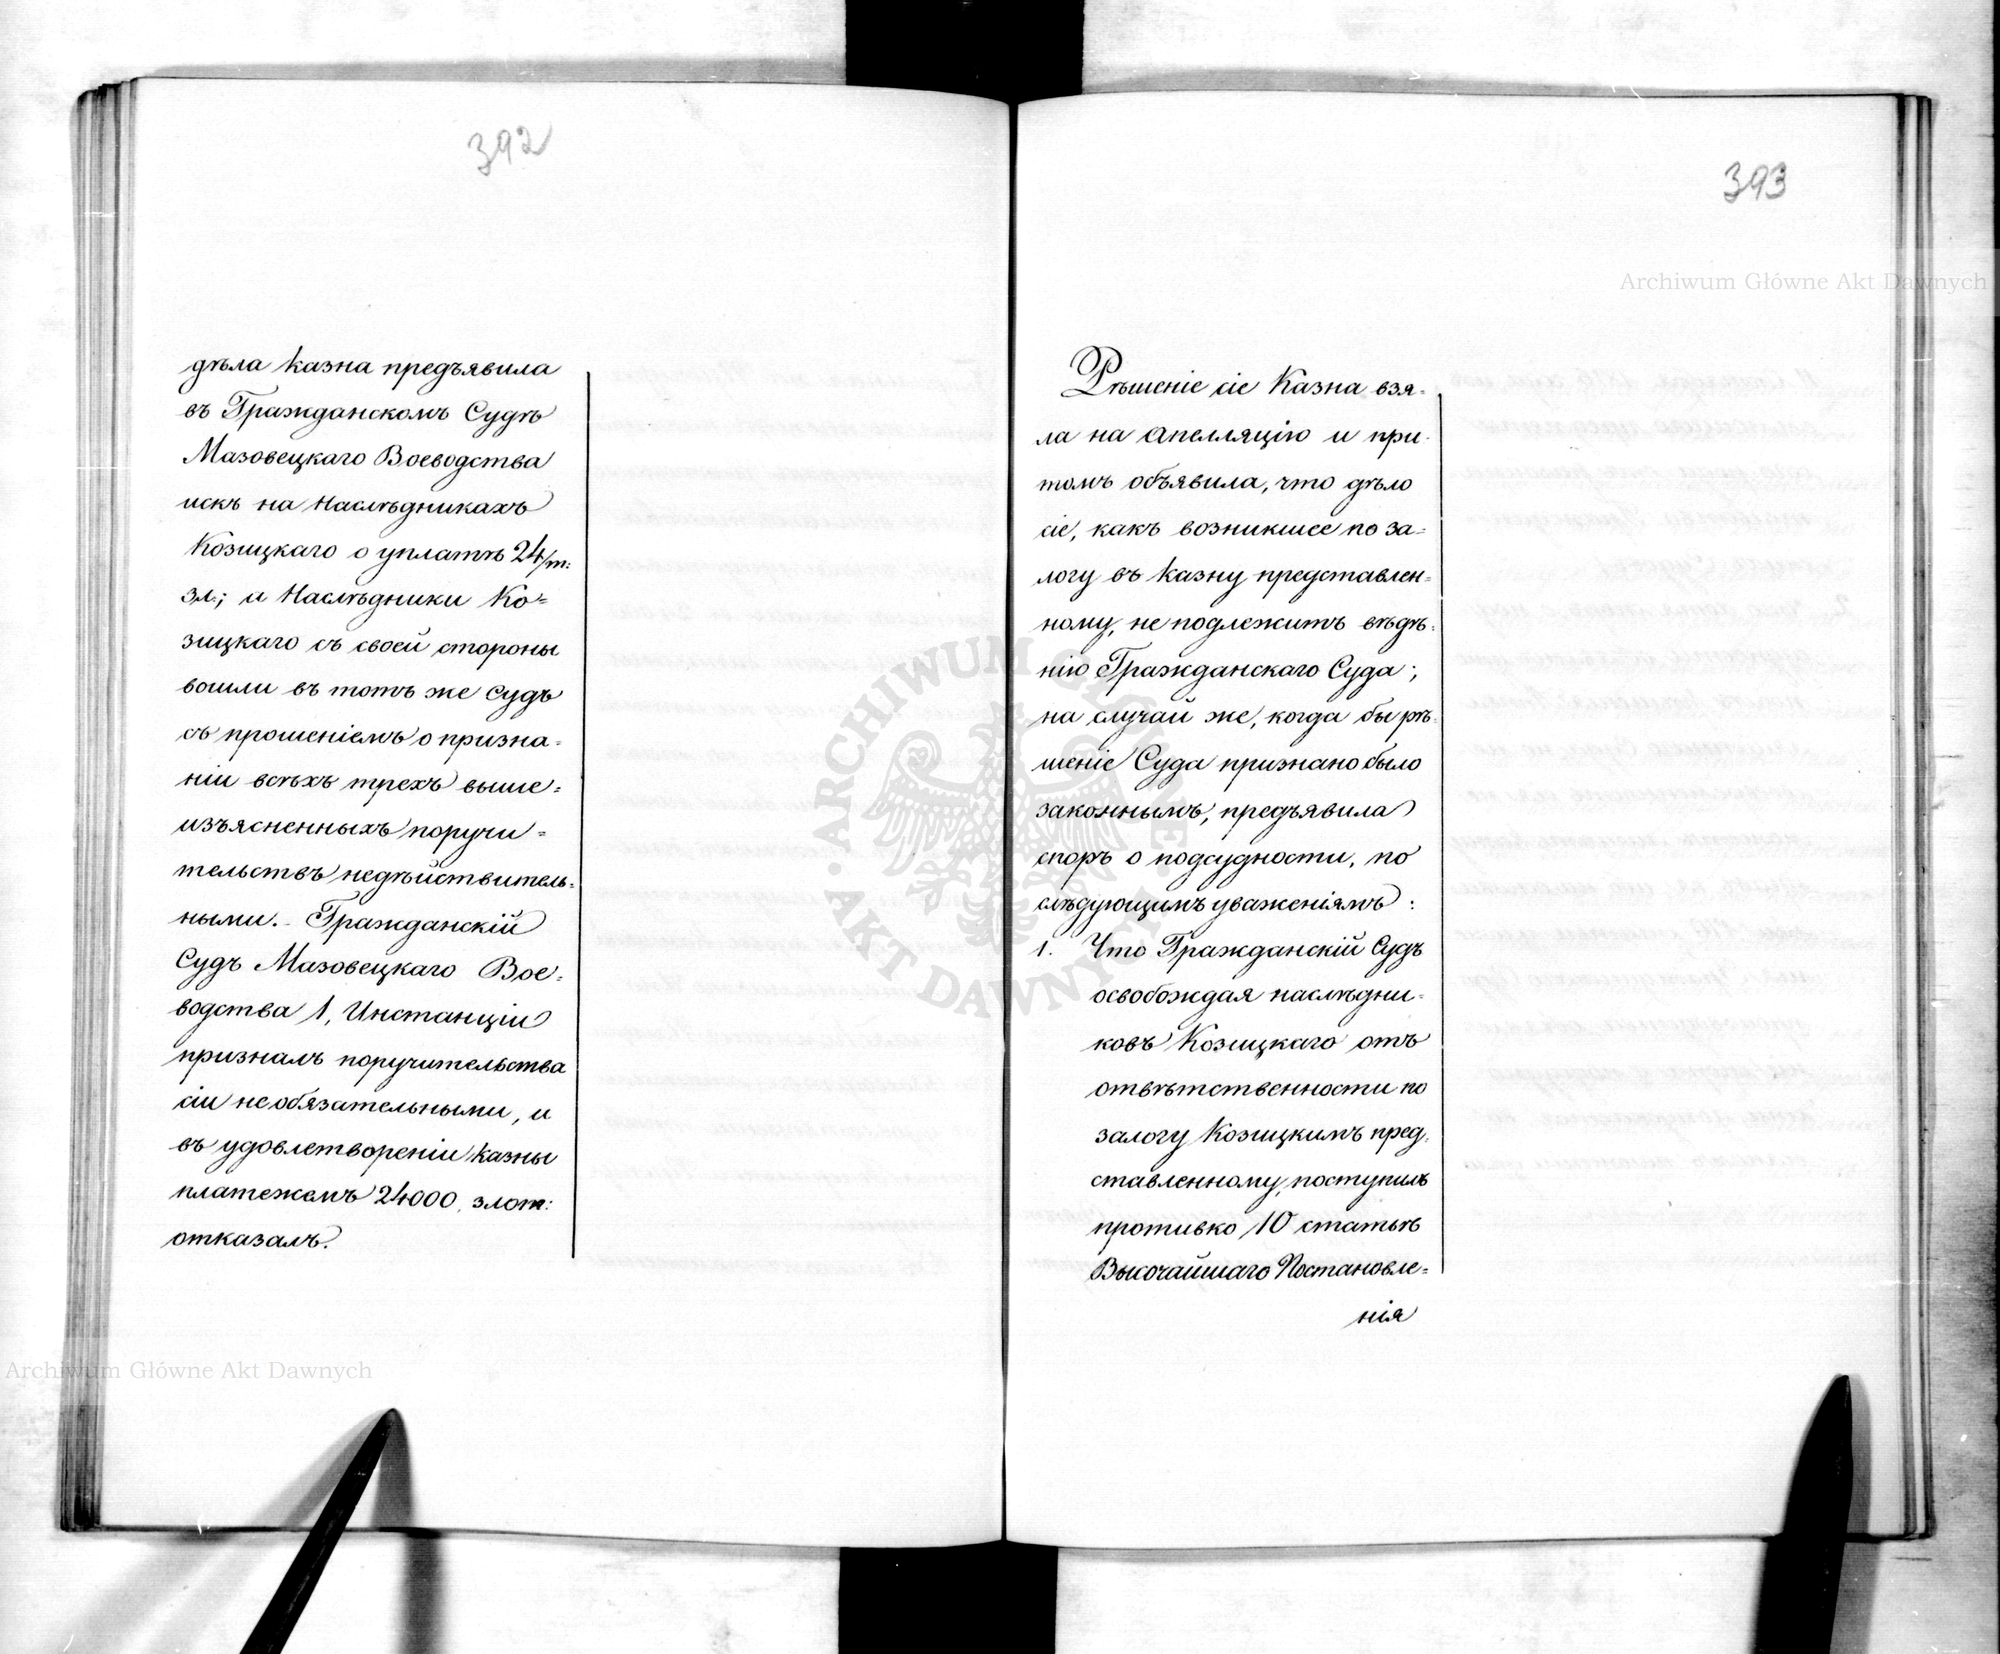 392
дѣла казна предъявила
въ Гражданскомъ Судѣ
Мазовецкаго Воеводства
искъ на Наслѣдникахъ
Козицкаго о уплатѣ 24/т:
зл:; а Наслѣдники Ко=
зицкаго съ своей стороны
вошли въ тотъ же Судъ
съ прошеніемъ о призна=
ніи всѣхъ трехъ выше=
изъясненныхъ поручи=
тельствъ недѣйствитель=
ными. Гражданскій
Судъ Мазовецкаго Вое=
водства 1, Инстанціи
призналъ поручительства
сіи необязательными, и
въ удовлетвореніи казны
платежемъ 24000 злот:
отказалъ.
393
Рѣшеніе сіе Казна взя=
ла на Апелляцію и при=
томъ объявила, что дѣло
сіе, какъ возникшее по за=
логу въ казну представлен=
ному, не подлежитъ вѣдѣ=
нію Гражданскаго Суда;
на случай же, когда бы рѣ=
шеніе Суда признано было
законнымъ, предъявила
споръ о подсудности, по
слѣдующимъ уваженіямъ:
1. Что Гражданскій Судъ
освобождая наслѣдни=
ковъ Козицкаго отъ
отвѣтственности по
залогу Козицкимъ пред=
ставленному, поступилъ
противко 10 статьѣ
Высочайшаго Постановле=
нія
Archiwum Główne Akt Dawnych
Archiwum Główne Akt Dawnych
ARCHIWUM GŁÓWNE AKT DAWNYCH